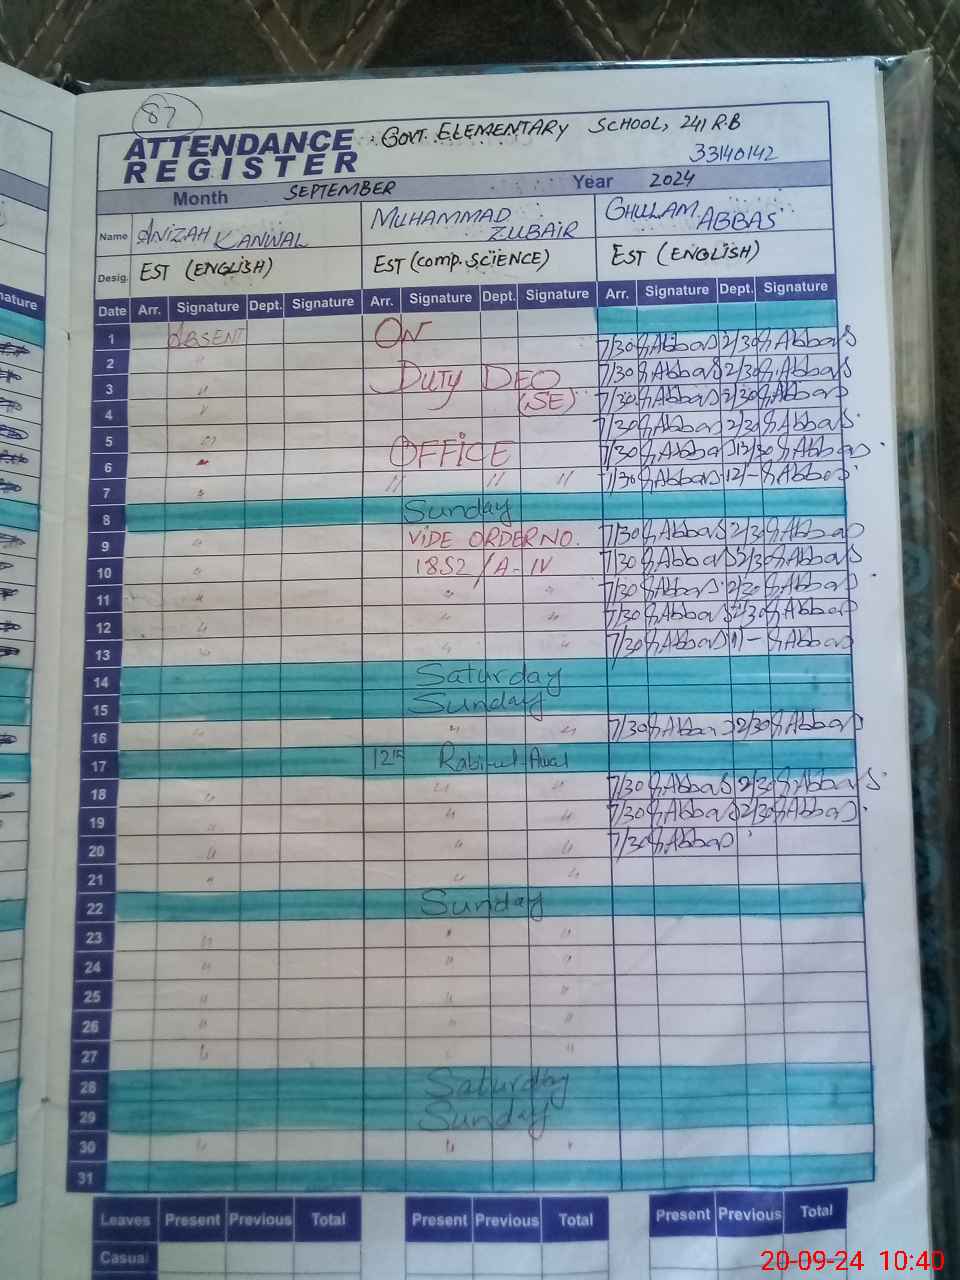 87
ATTENDANCE REGISTER
GOVT. ELEMENTARY SCHOOL, 241 R.B
33140142
Month SEPTEMBER Year 2024
Name ANIZAH KANWAL MUHAMMAD ZUBAIR GHULAM ABBAS
Desig. EST (ENGLISH) EST (COMP. SCIENCE) EST (ENGLISH)
Date Arr. Signature Dept. Signature Arr. Signature Dept. Signature Arr. Signature Dept. Signature
1 ABSENT ON
2 " 7/30 G,Abbas 2/30 G,Abbas
3 " DUTY DEO 7/30 G,Abbas 2/30 G,Abbas
4 " (SE) 7/30 G,Abbas 2/30 G,Abbas
5 " 7/30 G,Abbas 2/30 G,Abbas
6 " OFFICE 7/30 G,Abbas 12/30 G,Abbas
7 " " " " 7/30 G,Abbas 12/- G,Abbas
8 Sunday
9 " VIDE ORDER NO. 7/30 G,Abbas 2/30 G,Abbas
10 " 1852/A-IV 7/30 G,Abbas 2/30 G,Abbas
11 " " " 7/30 G,Abbas 2/30 G,Abbas
12 " " " 7/30 G,Abbas 2/30 G,Abbas
13 " " " 7/30 G,Abbas 11/- G,Abbas
14 Saturday
15 Sunday
16 " " " 7/30 G,Abbas 2/30 G,Abbas
17 12th Rabi-ul-Awal
18 " " " 7/30 G,Abbas 2/30 G,Abbas
19 " " " 7/30 G,Abbas 2/30 G,Abbas
20 " " " 7/30 G,Abbas
21 " " "
22 Sunday
23 " " "
24 " " "
25 " " "
26 " " "
27 " " "
28 Saturday
29 Sunday
30 " " "
31
Leaves Present Previous Total Present Previous Total Present Previous Total
Casual
20-09-24 10:40